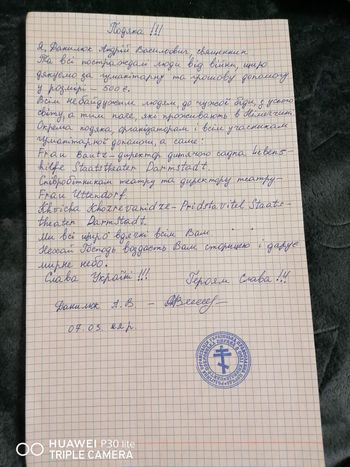 Подяка !!!
Я, Данилюк Андрій Васильович, священник
Та всі постраждалі люди від війни, щиро
дякуємо за гуманітарну та грошову допомогу
у розмірі - 500 €.
Всім небайдужим людям, до чужої біди, з усього
світу, а тим паче, які проживають в Німеччині
Окрема подяка, організаторам і всім учасникам
гуманітарної допомоги, а саме:
Frau Bautz - директор дитячого садка Lebens-
hilfe Staatsteheater Darmstadt.
Співробітникам театру та директору театру -
Frau Uttendorf.
Khvicha Khozrevanidze - Pridstavitel Staats-
theater Darmstadt.
Ми всі щиро вдячні всім Вам
Нехай Господь воздасть Вам сторицею і дарує
мирне небо.
Слава Україні !!! Героям Слава !!!
Данилюк А. В -
07. 03.
HUAWEI P30 lite
TRIPLE CAMERA